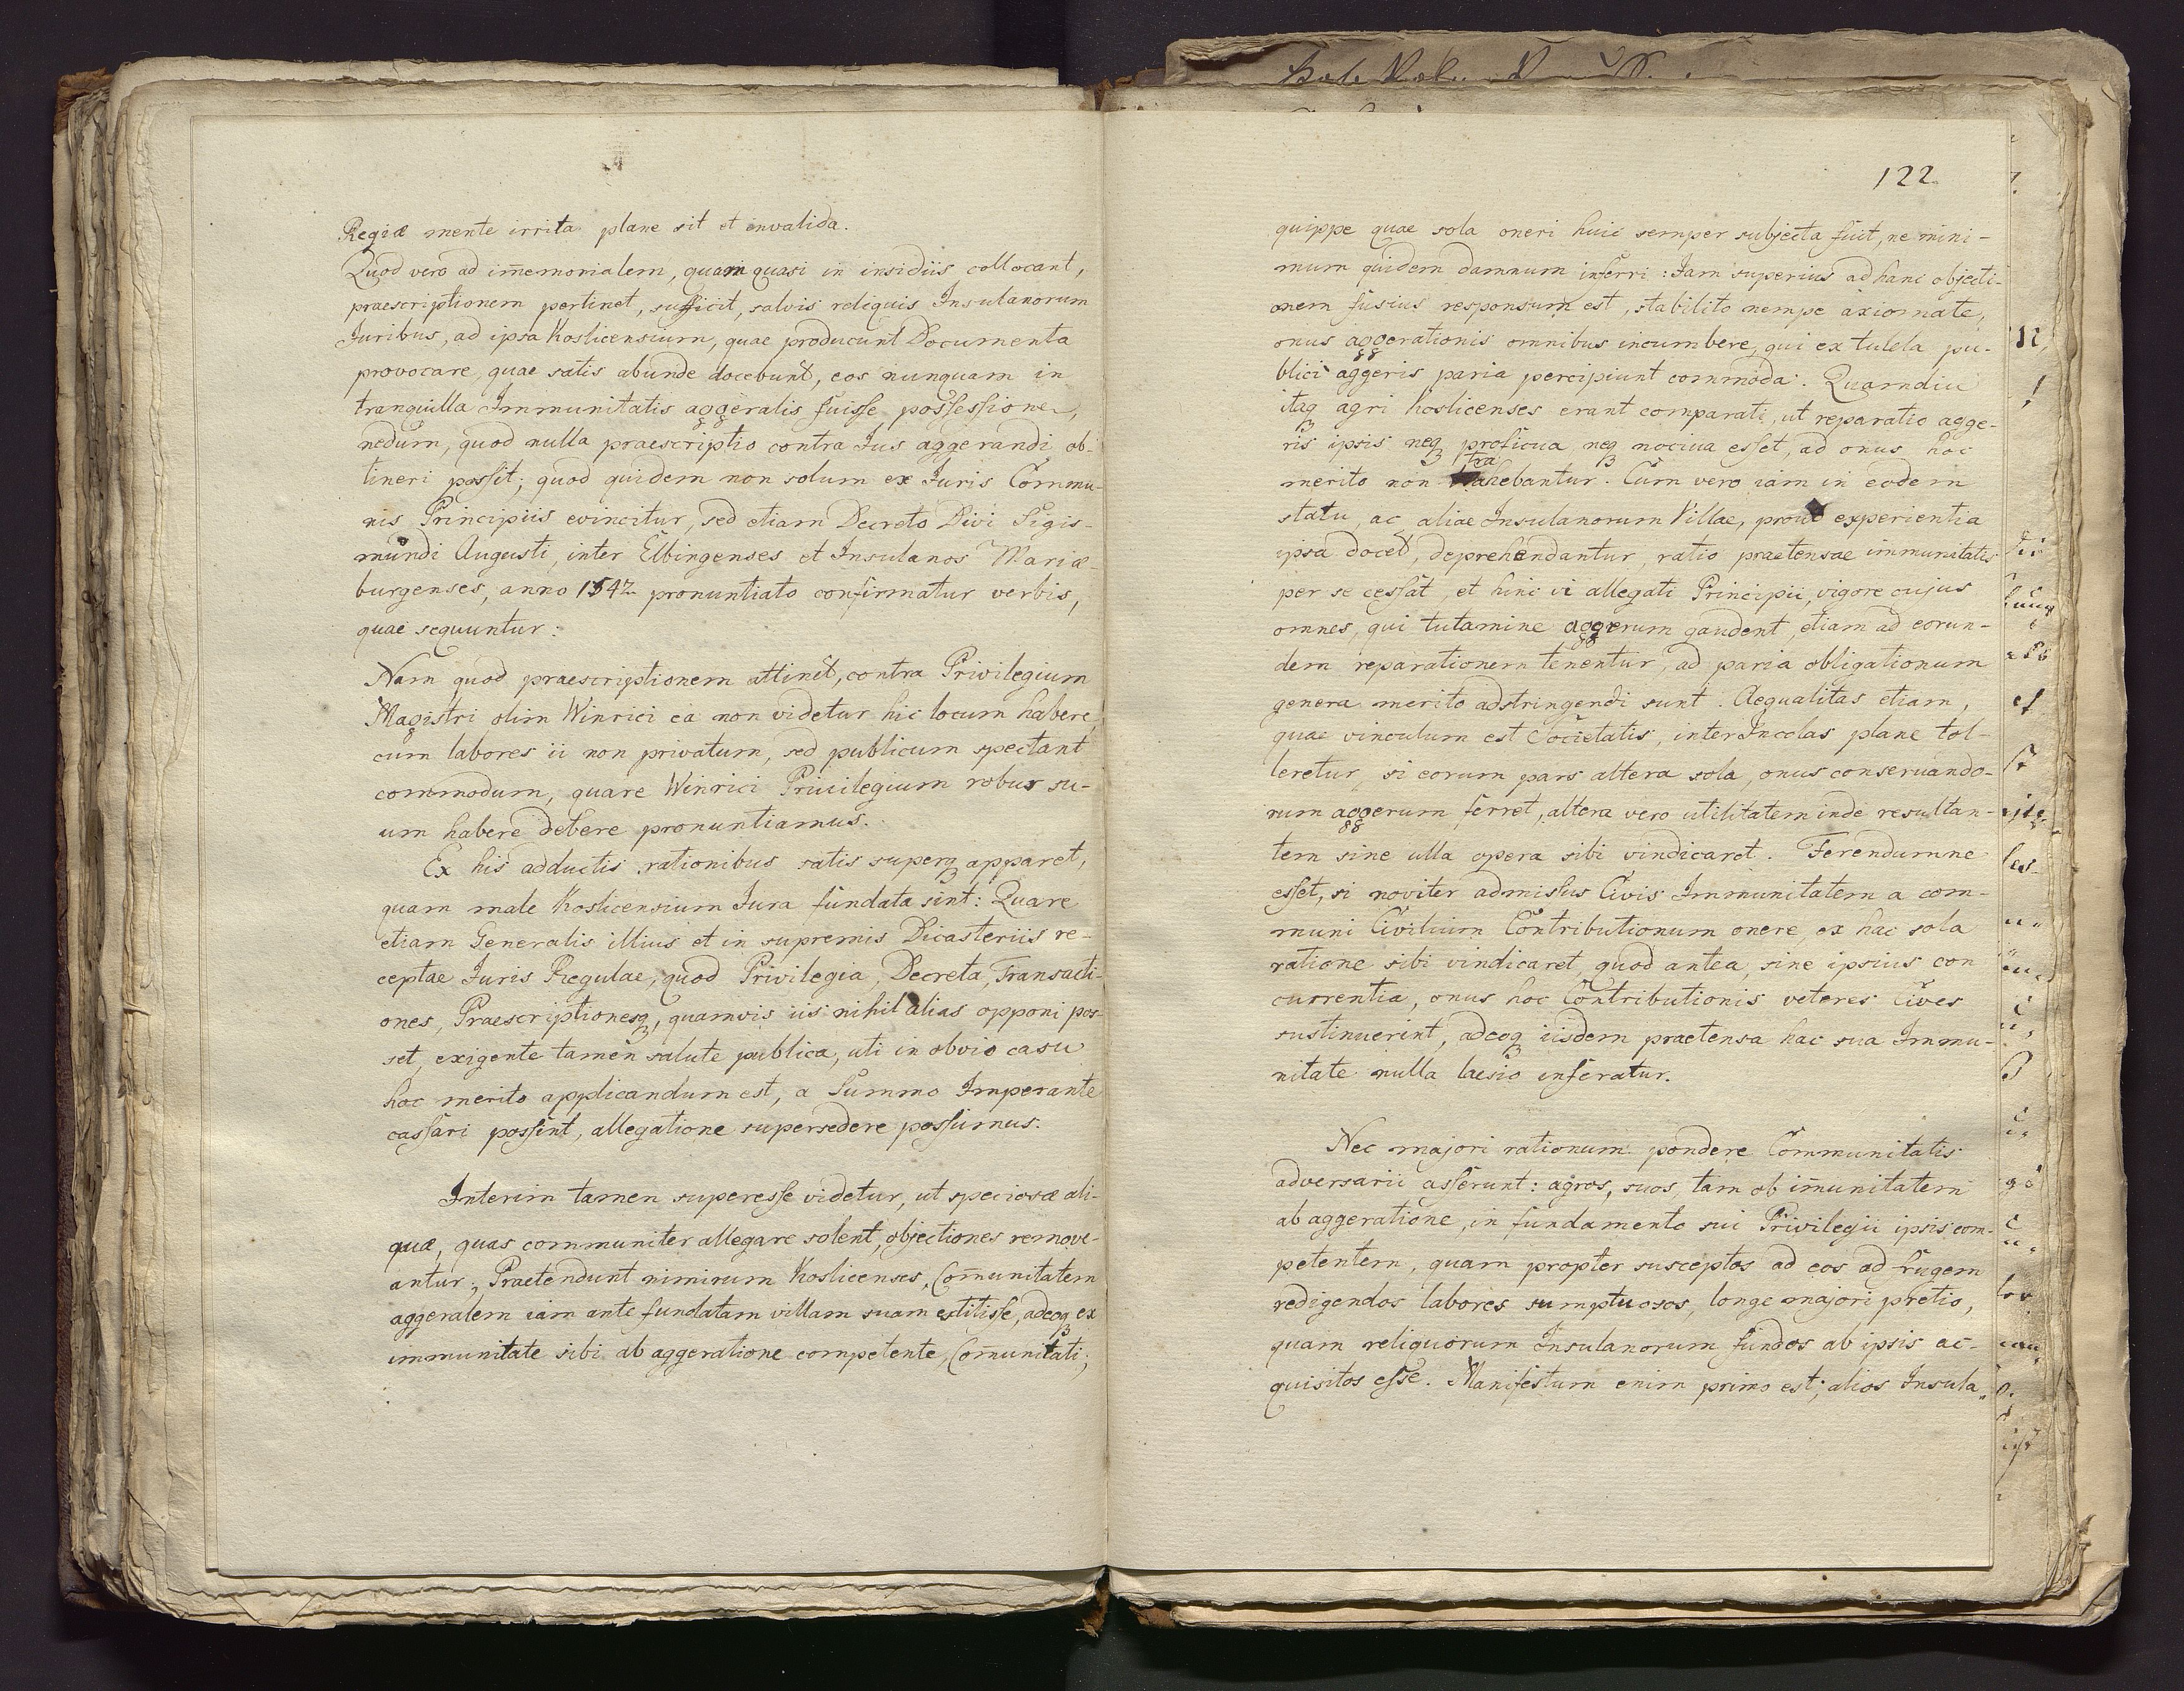 Regiæ mente irrita plane sit et invalida.
Quod vero ad im̄emorialem, quam quasi in insidiis collocant,
praescriptionem pertinet, sufficit, salvis reliquis Insulanorum
Juribus, ad ipsa Koslicensium, quae producunt Documenta
provocare, quae satis abunde docebunt, eos nunquam in
tranquilla Immunitatis aggeralis fuisse possessione,
nedum, quod nulla praescriptio contra Jus aggerandi ob-
tineri possit; quod quidem non solum ex Juris Commu-
nis Principiis evincitur, sed etiam Decreto Divi Sigis-
mundi Augusti, inter Elbingenses et Insulanos Mariæ-
burgenses, anno 1542 pronuntiato confirmatur verbis,
quae sequuntur:
Nam quod praescriptionem attinet, contra Privilegium
Magistri olim Winrici ea non videtur hic locum habere,
cum labores ii non privatum, sed publicum spectant
commodum, quare Winrici Privilegium robur su-
um habere debere pronuntiamus.
Ex his adductis rationibus satis superq apparet,
quam male Koslicensium Jura fundata sint: Quare
etiam Generalis illius et in supremis Dicasteriis re-
ceptae Juris Regulae, quod Privilegia, Decreta, Transacti-
ones, Praescriptionesq, quamvis iis nihil alias opponi pos-
set, exigente tamen salute publica, uti in obvio casu
hoc merito applicandum est, a Summo Imperante
cassari possint, allegatione supersedere possumus.
Interim tamen superesse videtur, ut speciosæ ali-
quæ, quas communiter allegare solent, objectiones remove-
antur: Praetendunt nimirum Koslicenses, Com̄unitatem
aggeralem iam ante fundatam villam suam extitisse, adeoq ex
immunitate sibi ab aggeratione competente, Com̄unitati;
122
quippe quae sola oneri huic semper subjecta fuit, ne mini-
mum quidem damnum inferri: Jam superius ad hanc objecti-
onem fusius responsum est, stabilito nempe axiomate,
onus aggerationis omnibus incumbere, qui ex tutela pu-
blici aggeris paria percipiunt commoda. Quamdiu
itaq agri Koslicenses erant comparati, ut reparatio agge-
ris ipsis neq proficua neq nociva esset, ad onus hoc
merito non trahebantur. Cum vero iam in eodem
statu, ac aliae Insulanorum Villae, prout experientia
ipsa docet, deprehendantur, ratio praetensae immunitatis
per se cessat, et hinc vi allegati Principii, vigore cujus
omnes, qui tutamine aggerum gaudent, etiam ad eorun-
dem reparationem tenentur, ad paria obligationum
genera merito adstringendi sunt. Aequalitas etiam,
quae vinculum est Societatis, inter Incolas plane tol-
leretur, si eorum pars altera sola, onus conservando-
rum aggerum ferret, altera vero utilitatem inde resultan-
tem sine ulla opera sibi vindicaret. Ferendumne
esset, si noviter admissus Civis Immunitatem a com-
muni Civilium Contributionum onere, ex hac sola
ratione sibi vindicaret, quod antea, sine ipsius con
currentia, onus hoc Contributionis veteres Cives
sustinuerint, adeoq iisdem praetensa hac sua Immu-
nitate nulla laesio inferatur.
Nec majori rationum pondere Communitatis
adversarii asserunt: agros, suos, tam ob im̄unitatem
ab aggeratione, in fundamento sui Privilegii ipsis com-
petentem, quam propter susceptos ad eos ad frugem
redigendos labores sumptuosos, longe majori pretio,
quam reliquorum Insulanorum fundos ab ipsis ac-
quisitos esse. Manifestum enim primo est; alios Insula-